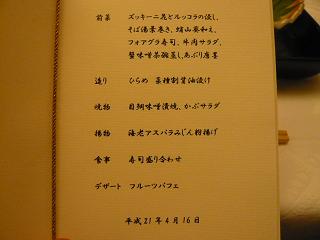 前菜 ズッキーニ花とルッコラの浸し、
そば湯葉巻き、蛸山葵和え、
フォアグラ寿司、牛肉サラダ、
蟹味噌茶碗蒸し、あぶり唐墨
造り ひらめ 菜種割醤油披け
焼物 目鯛味噌漬焼、かぶサラダ
揚物 海老アスパラみじん粉揚げ
食事 寿司盛り合わせ
デザート フルーツパフェ
平成21年4月16日